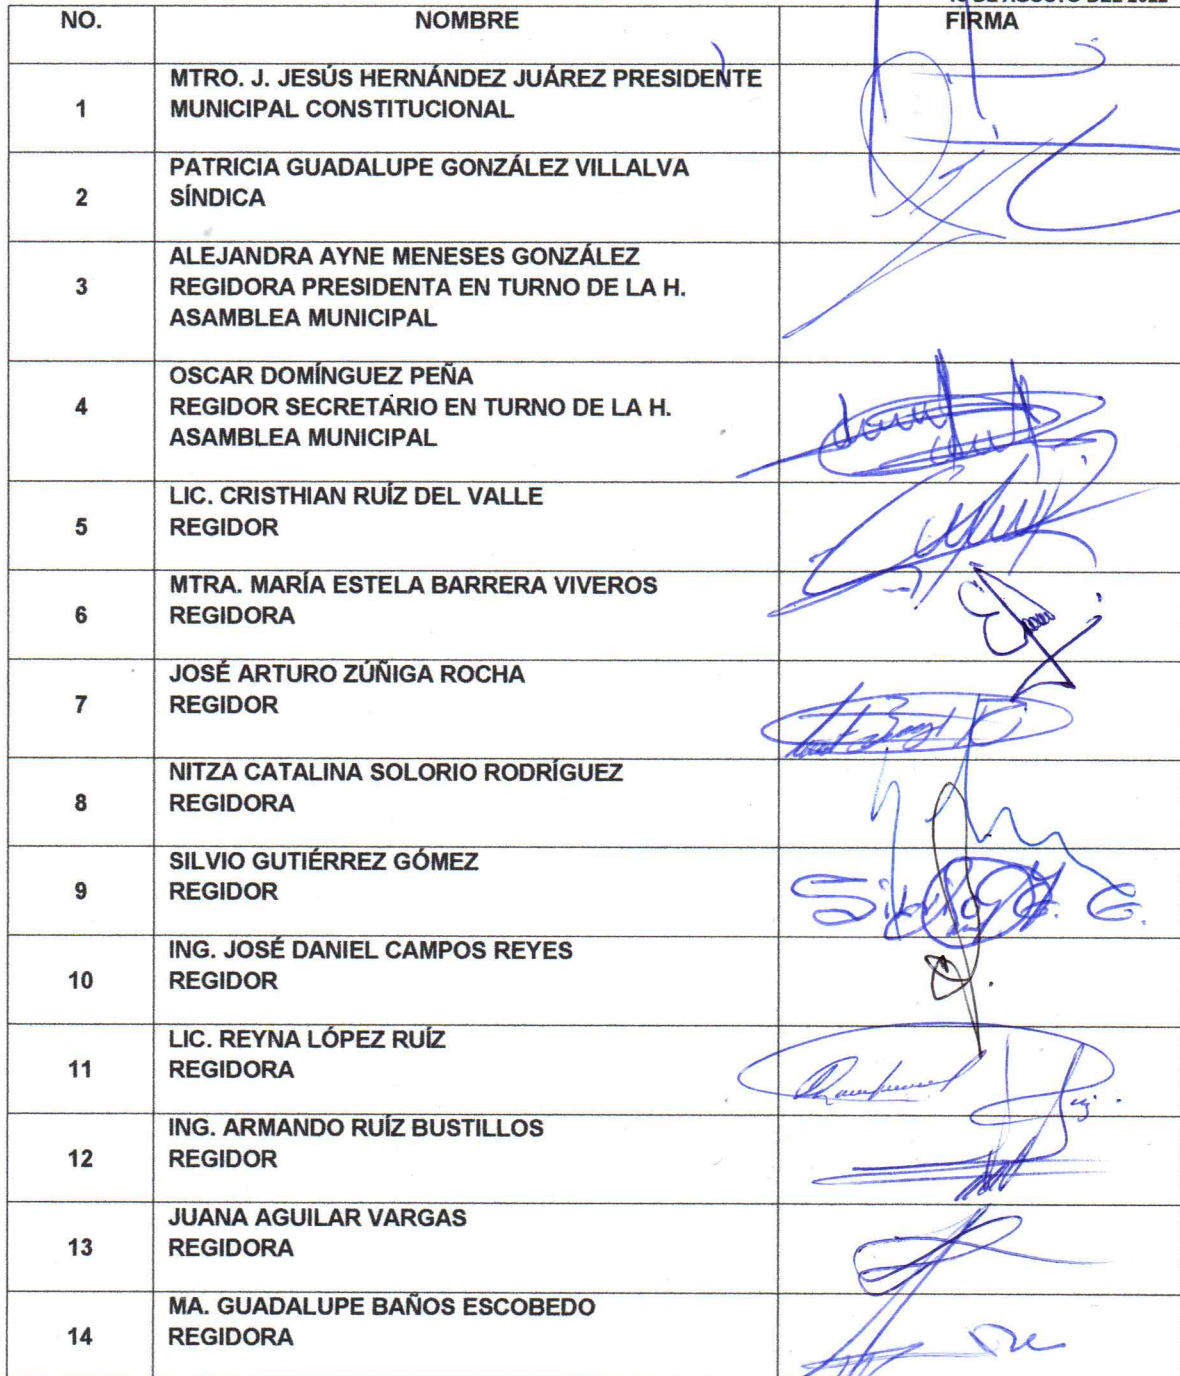 DE AGOSTO DEL 2022
NO. NOMBRE FIRMA
1 MTRO. J. JESÚS HERNÁNDEZ JUÁREZ PRESIDENTE
MUNICIPAL CONSTITUCIONAL
2 PATRICIA GUADALUPE GONZÁLEZ VILLALVA
SÍNDICA
3 ALEJANDRA AYNE MENESES GONZÁLEZ
REGIDORA PRESIDENTA EN TURNO DE LA H.
ASAMBLEA MUNICIPAL
4 OSCAR DOMÍNGUEZ PEÑA
REGIDOR SECRETARIO EN TURNO DE LA H.
ASAMBLEA MUNICIPAL
5 LIC. CRISTHIAN RUÍZ DEL VALLE
REGIDOR
6 MTRA. MARÍA ESTELA BARRERA VIVEROS
REGIDORA
7 JOSÉ ARTURO ZÚÑIGA ROCHA
REGIDOR
8 NITZA CATALINA SOLORIO RODRÍGUEZ
REGIDORA
9 SILVIO GUTIÉRREZ GÓMEZ
REGIDOR
10 ING. JOSÉ DANIEL CAMPOS REYES
REGIDOR
11 LIC. REYNA LÓPEZ RUÍZ
REGIDORA
12 ING. ARMANDO RUÍZ BUSTILLOS
REGIDOR
13 JUANA AGUILAR VARGAS
REGIDORA
14 MA. GUADALUPE BAÑOS ESCOBEDO
REGIDORA